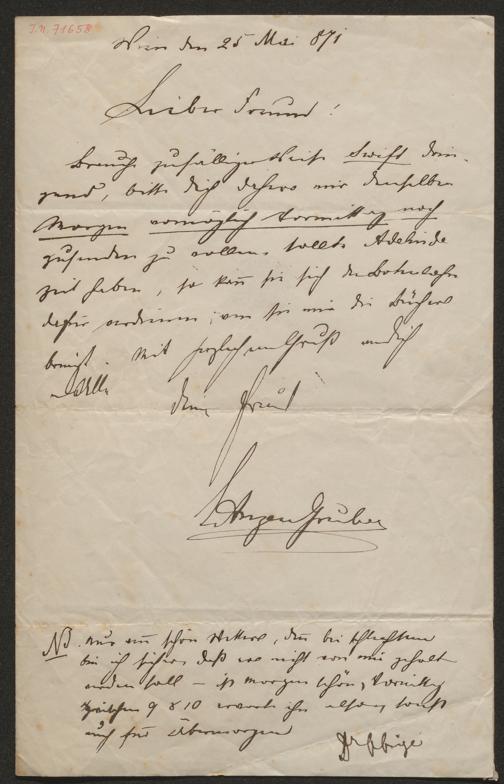 J.N. 71658
Wien den 25 Mai 871
Lieber Freund!
Brauche zufälligerweise Swift drin-
gend, bitte dich daher mir denselben
Morgen womöglich Vormittag noch
zusenden zu wollen. Sollte Adelinde
Zeit haben, so kann sie sich den Botenlohn
dafür verdienen, wenn sie mir die Bücher
bringt. Mit herzlichem Gruß an dich
und Alle
Dein Freund
LAnzenGruber
NB. Nur wenn schön Wetter, denn bei schlechtem
bin ich sicher, daß es nicht von mir geholt
werden soll – ist morgen schön, Vormittag
zwischen 9 & 10 erwarte ihn also, sonst
auch für Übermorgen
Der Obige